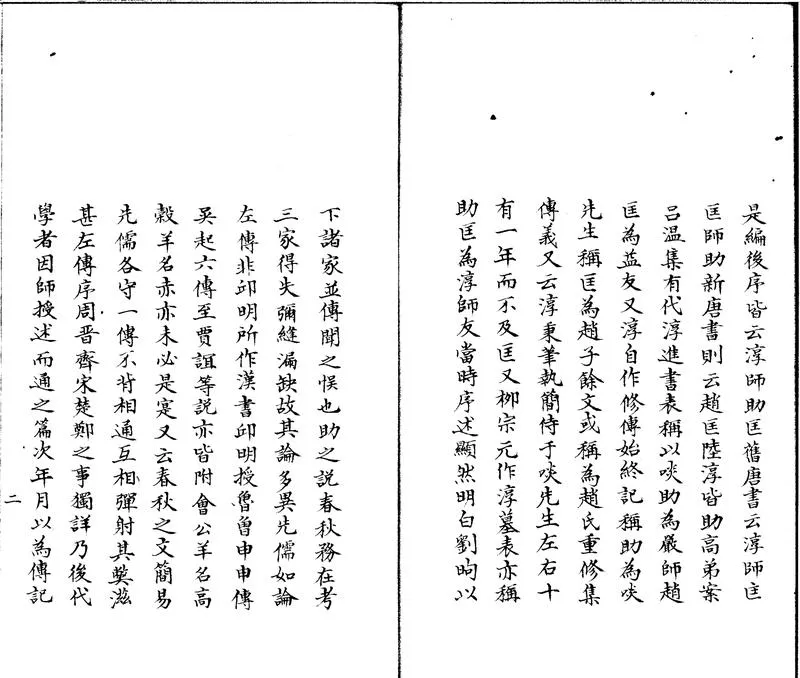 是編後序皆云淳師助匡舊唐書云淳師匡
匡師助新唐書則云趙匡陸淳皆助高弟案
呂温集有代淳進書表稱以啖助為嚴師趙
匡為益友又淳自作修傳始終記稱助為啖
先生稱匡為趙子餘文或稱為趙氏重修集
傳義又云淳秉筆執簡侍于啖先生左右十
有一年而不及匡又栁宗元作淳墓表亦稱
助匡為淳師友當時序述顯然明白劉昫以
下諸家並傳聞之悮也助之説春秋務在考
三家得失彌縫漏缺故其論多異先儒如論
左傳非邱明所作漢書邱明授魯魯申申傳
吳起六傳至賈誼等説亦皆附會公羊名高
榖羊名赤亦未必是寔又云春秋之文簡易
先儒各守一傳不肯相通互相彈射其獘滋
甚左傳序周晋齊宋楚鄭之事獨詳乃後代
學者因師授述而通之篇次年月以為傳記
二